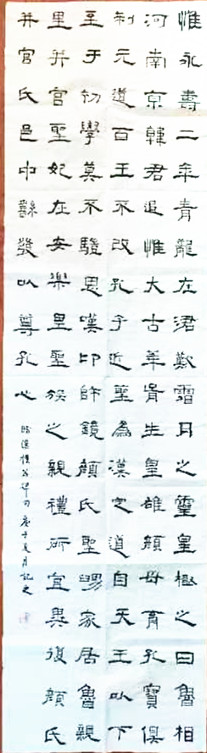 惟永壽二年青龍在涒歎霜月之靈皇極之日魯相
河南京韓君追惟大古華胥生皇雄顏母育孔寶俱
制元道百王不改孔子近聖為漢定道自天王以下
至于初學莫不驥思嘆卬師鏡顏氏聖舅家居魯親
里并官聖妃在安樂里聖族之親禮所宜異復顏氏
并官氏邑中繇發以尊孔心
臨漢禮器碑句庚子夏月